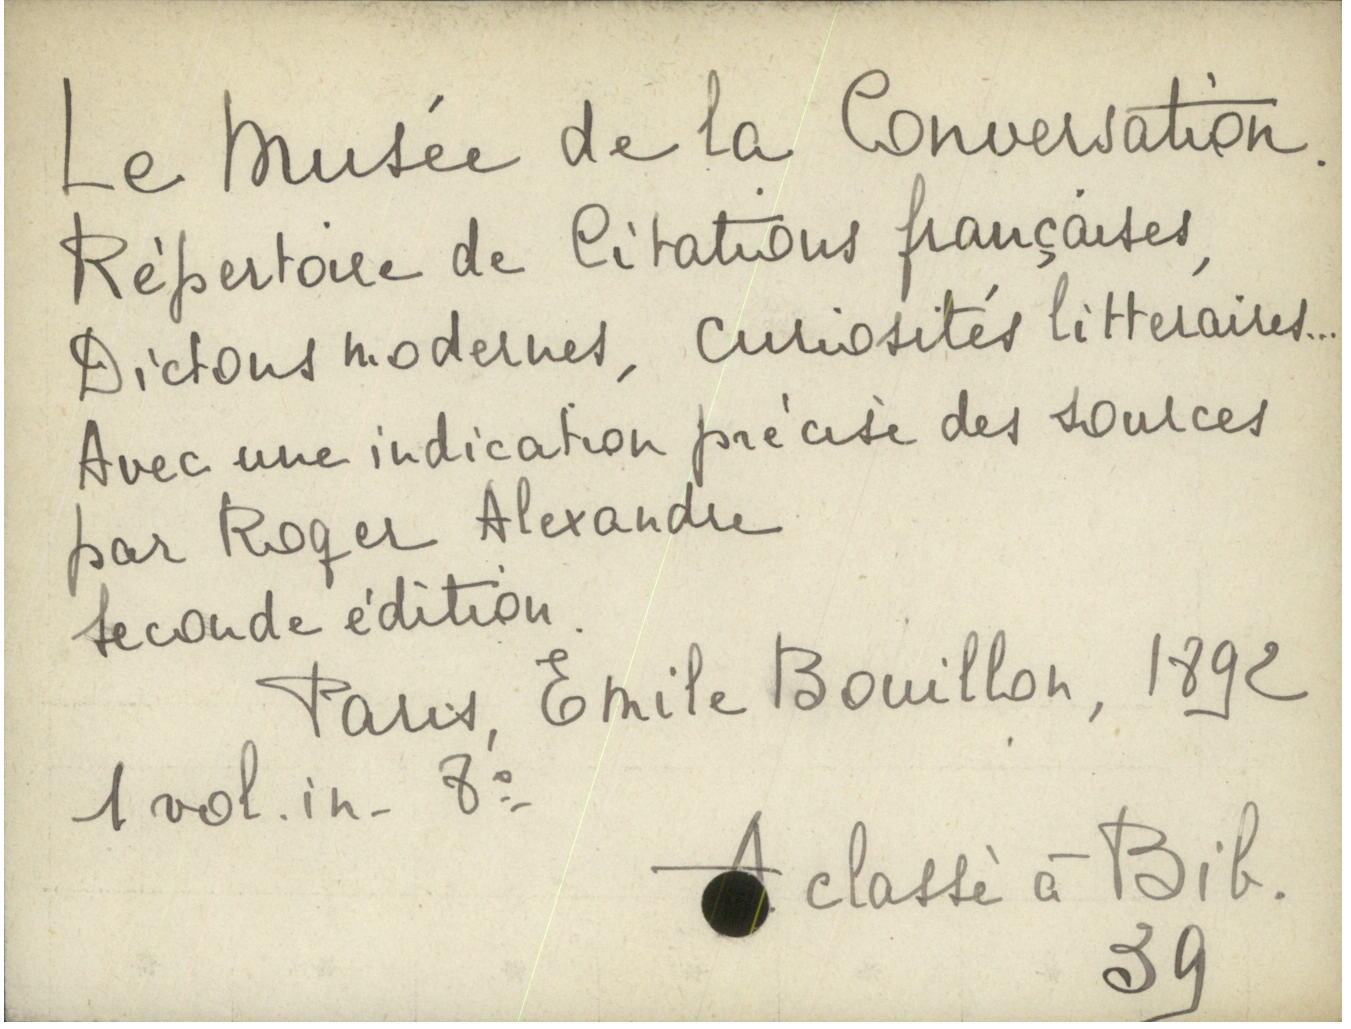 Le Musée de la Conversation.
Répertoire de Citations françaises,
Dictons modernes, curiosités littéraires...
Avec une indication précise des sources
par Roger Alexandre
seconde édition.
Paris, Emile Bouillon, 1892
1 vol. in-8º
A classé à Bib.
39